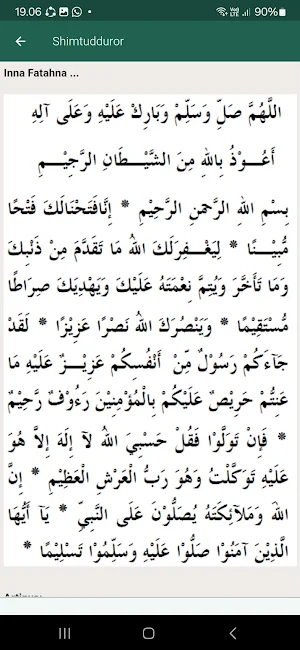 19.06
90%
Shimtudduror
Inna Fatahna ...
اَللَّهُمَّ صَلِّ وَسَلِّمْ وَبَارِكْ عَلَيْهِ وَعَلَى آلِهِ
أَعُـوْذُ بِاللهِ مِنَ الشَّيْـطَانِ الرَّجِيْـمِ
بِسْمِ اللهِ الرَّحْمنِ الرَّحِيْمِ * إِنَّافَتَحْنَالَكَ فَتْحًا
مُّبِيْـنًا * لِيَغْفِرَلَكَ اللهُ مَا تَقَدَّمَ مِنْ ذَنْبِكَ
وَمَا تَأَخَّرَ وَيُتِمَّ نِعْمَتَهُ عَلَيْكَ وَيَهْدِيَكَ صِرَاطًا
مُّسْتَقِيْمًا * وَيَنْصُرَكَ اللهُ نَصْرًا عَزِيْزًا * لَقَدْ
جَآءَكُمْ رَسُوْلٌ مِّنْ أَنْفُسِكُمْ عَزِيْـزٌ عَلَيْهِ مَا
عَنِتُّمْ حَرِيْصٌ عَلَيْكُمْ بِالْمُؤْمِنِيْنَ رَءُوْفٌ رَّحِيْمٌ
* فَإِنْ تَوَلَّوْا فَقُلْ حَسْبِيَ اللهُ لآ إِلَهَ إِلاَّ هُوَ
عَلَيْهِ تَوَكَّلْتُ وَهُوَ رَبُّ الْعَرْشِ الْعَظِيْمِ * إِنَّ
اللهَ وَمَلآئِكَتَهُ يُصَلُّوْنَ عَلَى النَّبِيِّ * يَآ أَيُّهَا
الَّذِيْنَ آمَنُوْا صَلُّوْا عَلَيْهِ وَسَلِّمُوْا تَسْلِيْمًا *